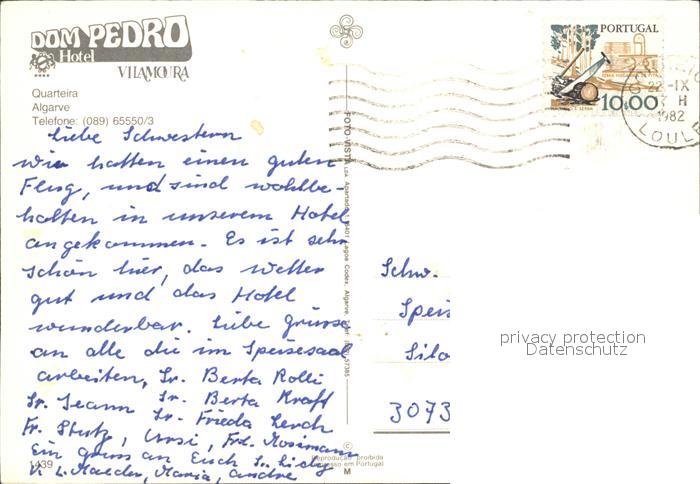 DOM PEDRO
Hotel
VILAMOURA
Quarteira
Algarve
Telefone: (089) 65550/3
PORTUGAL
10$00
22-IX
1982
LOULÉ
Liebe Schwestern
wir hatten einen guten
Flug, und sind wohlbe-
halten in unserem Hotel
angekommen. Es ist sehr
schön hier, das Wetter
gut und das Hotel
wunderbar. Liebe grüsse
an alle die im Speisesaal
arbeiten, Sr. Berta Rolli
Sr. Jeann Sr. Berta Kraft
Sr. Frieda Lerch
Fr. Stutz, Ursi, Frl. Mosimann
Ein gruss an Euch Sr. Lidy
Maeder, Maria, andre
FOTO-VISTA
Schw.
Speis
Silo
3073
privacy protection
Datenschutz
1439
©
Reprodução proibida
Impresso em Portugal
M